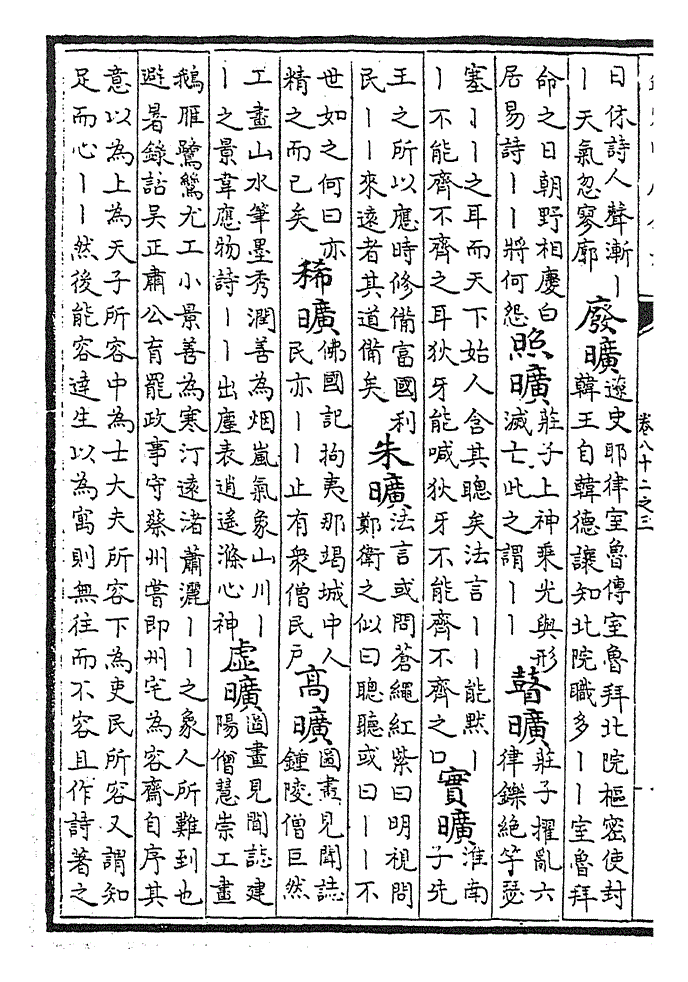 卷八十二之三
日休詩人聲漸丨
丨天氣忽寥廓
廢曠
遼史耶律室魯傳室魯拜北院樞密使封
韓王自韓德讓知北院職多丨丨室魯拜
命之日朝野相慶白
居易詩丨丨將何怨
照曠
莊子上神乘光與形
滅亡此之謂丨丨
瞽曠
莊子擢亂六
律鑠絕竽瑟
塞丨丨之耳而天下始人含其聰矣法言丨丨能默丨
丨不能齊不齊之耳狄牙能喊狄牙不能齊不齊之口
實曠
淮南
子先
王之所以應時修備富國利
民丨丨來遠者其道備矣
朱曠
法言或問蒼蠅紅紫曰明視問
鄭衛之似曰聰聽或曰丨丨不
世如之何曰亦
精之而已矣
稀曠
佛國記拘夷那竭城中人
民亦丨丨止有衆僧民戶
高曠
圖畫見聞誌
鍾陵僧巨然
工畫山水筆墨秀潤善為烟嵐氣象山川丨
丨之景韋應物詩丨丨出塵表逍遙滌心神
虛曠
圖畫見聞誌建
陽僧慧崇工畫
鵝雁鷺鷥尤工小景善為寒汀遠渚蕭灑丨丨之象人所難到也
避暑錄話吳正肅公育罷政事守蔡州嘗即州宅為容齋自序其
意以為上為天子所容中為士大夫所容下為吏民所容又謂知
足而心丨丨然後能容達生以為寓則無往而不容且作詩著之